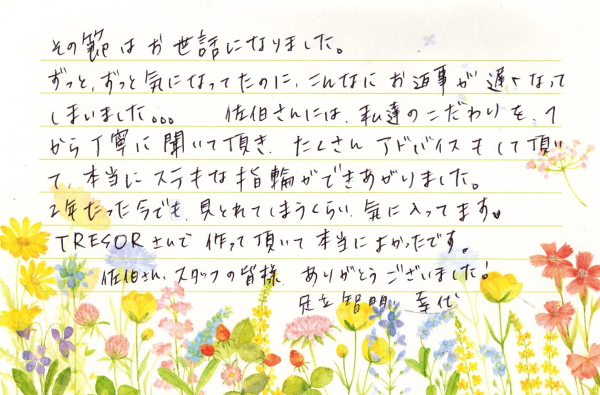 その節はお世話になりました。
ずっと、ずっと気になってたのに、こんなにお返事が遅くなって
しまいました... 佐伯さんには、私達のこだわりを、1
から丁寧に聞いて頂き、たくさんアドバイスもして頂い
て、本当にステキな指輪ができあがりました。
2年たった今でも、見とれてしまうくらい、気に入ってます。
TRESORさんで作って頂いて本当によかったです。
佐伯さん、スタッフの皆様、ありがとうございました!
足立 幸代